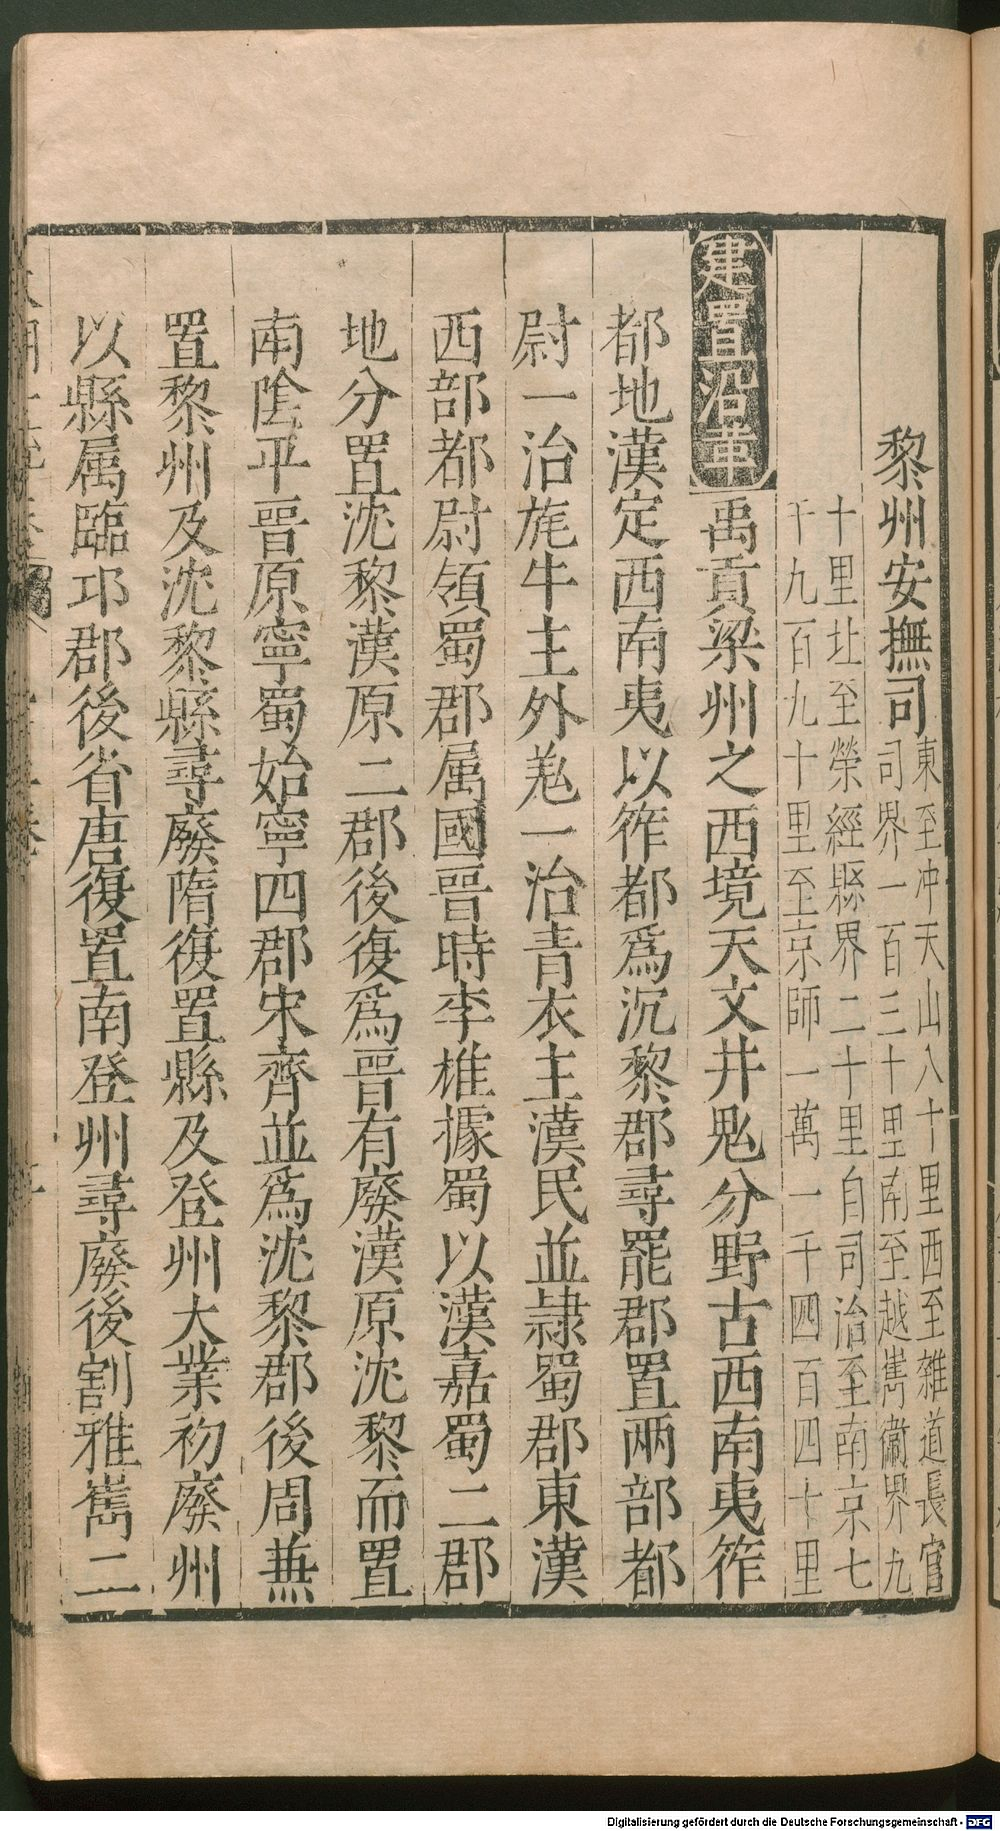 黎州安撫司東至冲天山八十里西至雜道長官
司界一百三十里南至越嶲衞界九
十里北至榮經縣界二十里自司治至南京七
千九百九十里至京師一萬一千四百四十里
建置沿革禹貢梁州之西境天文井鬼分野古西南夷筰
都地漢定西南夷以筰都爲沉黎郡尋罷郡置兩部都
尉一治旄牛主外羗一治青衣主漢民並隷蜀郡東漢
西部都尉領蜀郡属國晋時李雄據蜀以漢嘉蜀二郡
地分置沈黎漢原二郡後復爲晋有廢漢原沈黎而置
南陰平晋原寧蜀始寧四郡宋齊並爲沈黎郡後周蕪
置黎州及沈黎縣尋廢隋復置縣及登州大業初廢州
以縣属臨邛郡後省唐復置南登州尋廢後割雅嶲二
Digitalisierung gefördert durch die Deutsche Forschungsgemeinschaft - DFG